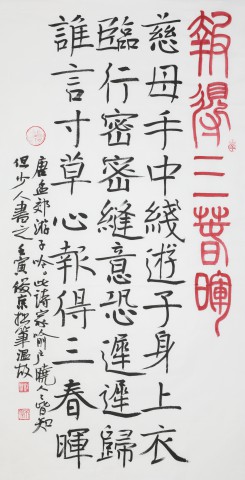 報得三春暉
慈母手中綫遊子身上衣
臨行密密縫意恐遲遲歸
誰言寸草心報得三春暉
唐孟郊游子吟此詩家喻户曉人人皆知
但少人書之壬寅俊京拙筆温故